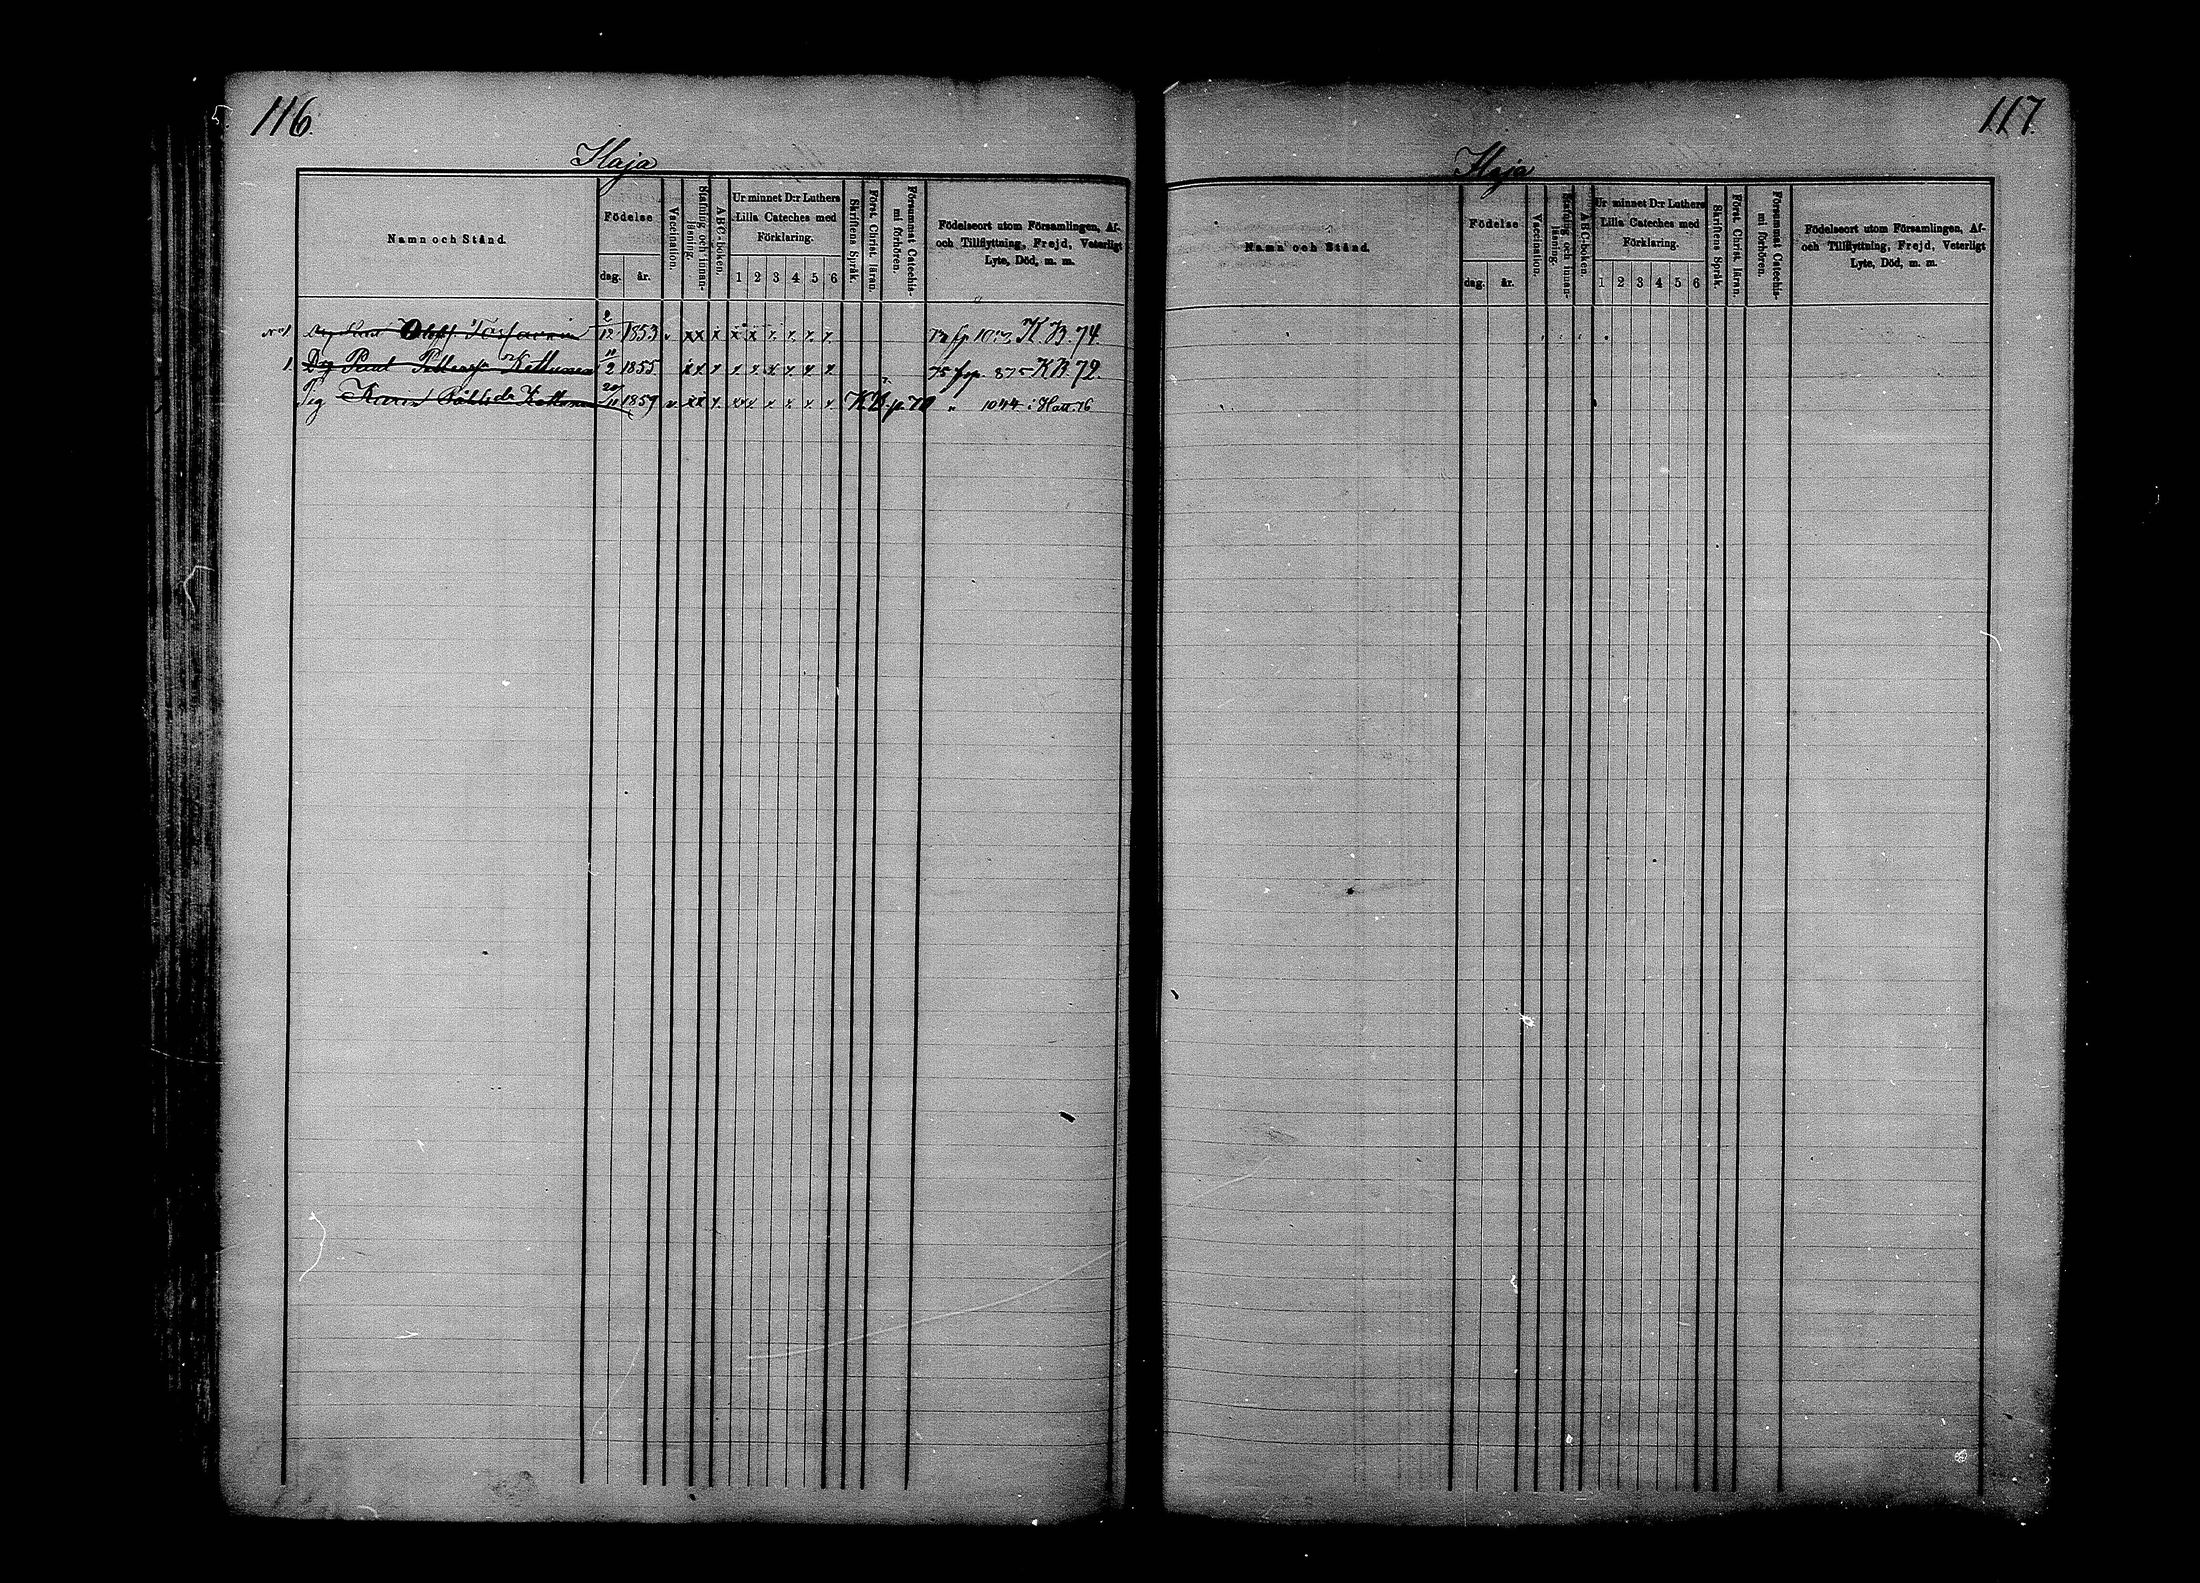 116.
Ilaja
Namn och Stånd.
Födelse
dag.
år.
Vaccination.
Stafning och innan-
läsning.
ABC-boken.
Ur minnet D:r Luthers
Lilla Cateches med
Förklaring.
1 2 3 4 5 6
Skriftens Språk.
Först. Christ. läran.
Försummat Catechis-
mi förhören.
Födelseort utom Församlingen, Af-
och Tillflyttning, Frejd, Veterligt
Lyte, Död, m. m.
No 1 Olof 2/12 1853 v xx x x x x x x x K.B. 74.
1. Dg Paul Kettunen 10/2 1855 xx x x x x x x x 75 fsp. 875 K.B. 72.
Pig Karin Kettunen 1859 v xx x xx x x x x x KB. p. 70 " 1044 i Hatt. 76
117.
Ilaja
Namn och Stånd.
Födelse
dag.
år.
Vaccination.
Stafning och innan-
läsning.
ABC-boken.
Ur minnet D:r Luthers
Lilla Cateches med
Förklaring.
1 2 3 4 5 6
Skriftens Språk.
Först. Christ. läran.
Försummat Catechis-
mi förhören.
Födelseort utom Församlingen, Af-
och Tillflyttning, Frejd, Veterligt
Lyte, Död, m. m.